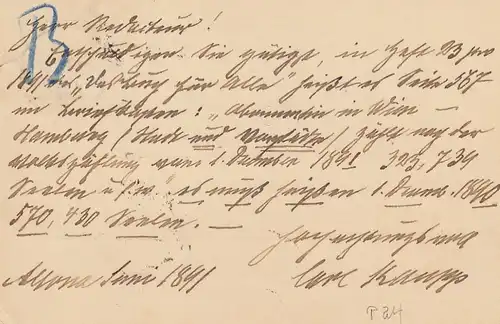 B
Herr Redacteur!
Entschuldigen Sie gütigst, in Heft 23 pro
1891 des „Das Buch für Alle" heißt es Seite 567
im Briefkasten: „Abonnentin in Wien —
Hamburg (Stadt und Vorstädte) zählt nach der
Volkszählung vom 1. December 1891 323,739
Seelen u.s.w." es muß heißen 1. Decemb. 1890
570,430 Seelen. —
Hochachtungsvoll
Altona Juni 1891 Carl
P 24